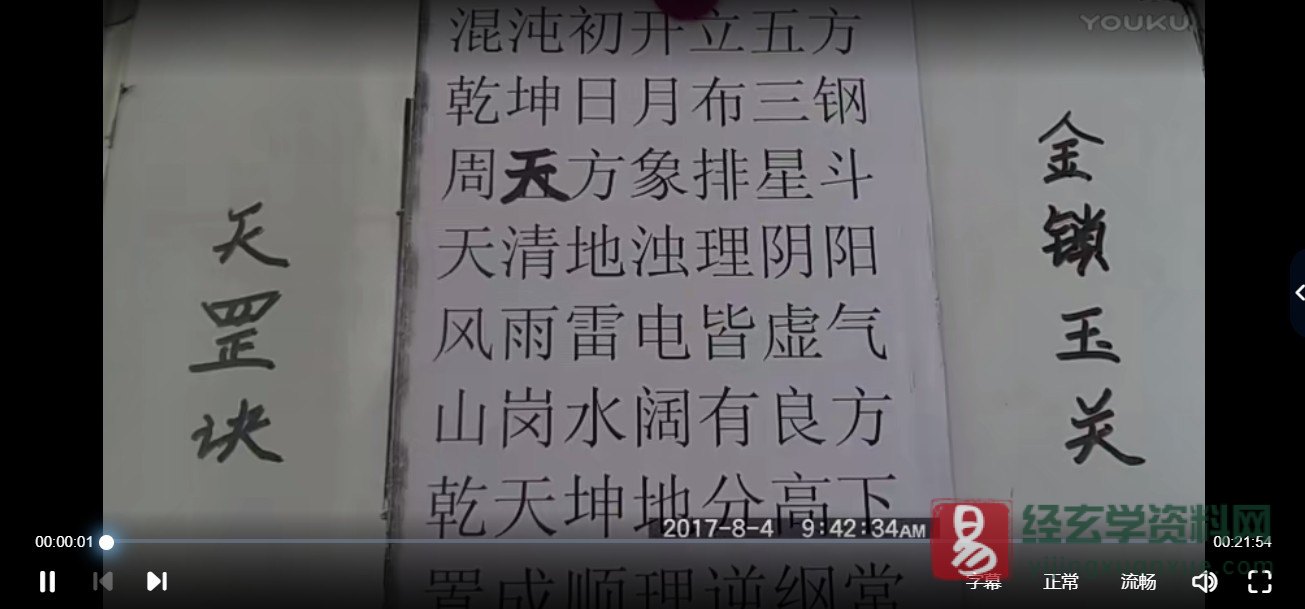 YOUKU
混沌初开立五方
乾坤日月布三钢
周天方象排星斗
天清地浊理阴阳
风雨雷电皆虚气
山岗水阔有良方
乾天坤地分高下
置成顺理逆纲常
金锁玉关
天罡诀
2017-8-4 9:42:34AM
易
经玄学资料网
00:00:01
00:21:54
字幕
正常
流畅